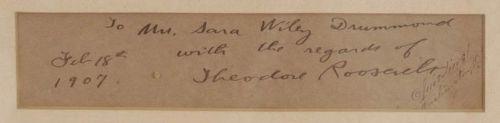 To Mrs. Sara Wiley Drummond
Feb 18th with the regards of
1907. Theodore Roosevelt